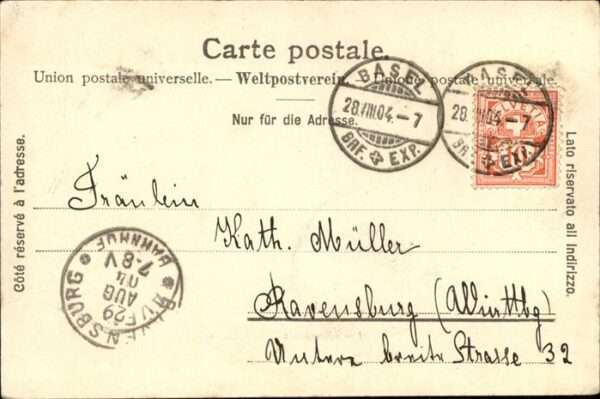 Carte postale.
Union postale universelle. — Weltpostverein. — Unione postale universale.
Nur für die Adresse.
Côté réservé à l'adresse.
Lato riservato all indirizzo.
BASEL
28.VIII.04.-7
BRF. EXP.
BASEL
28.VIII.04.-7
BRF. EXP.
HELVETIA
Fräulein
Kath. Müller
Ravensburg (Württbg)
Untere breite Strasse 32
RAVENSBURG
29
AUG
04
7-8V
BAHNHOF